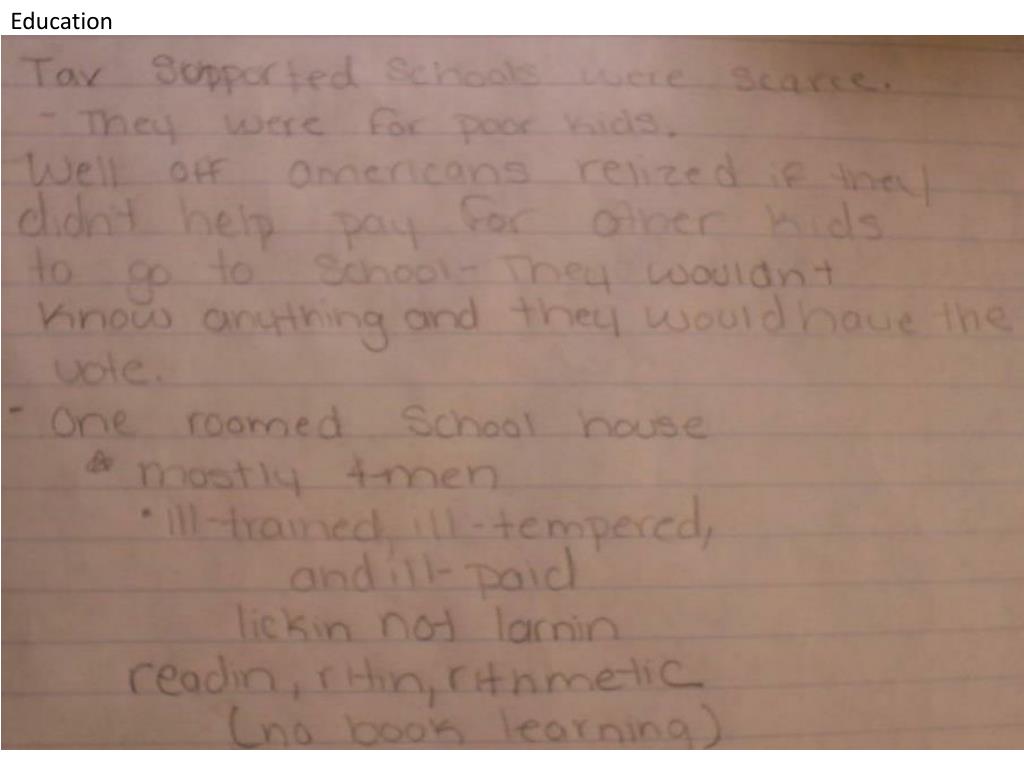 Education
Tax supported schools were scarce.
- They were for poor kids.
Well off americans relized if they
didn't help pay for other kids
to go to School- They wouldn't
know anything and they would have the
vote.
- One roomed School house
mostly tmen
• ill-trained, ill-tempered,
and ill-paid
lickin not larnin
readin, ritin, rithmetic
(no book learning)